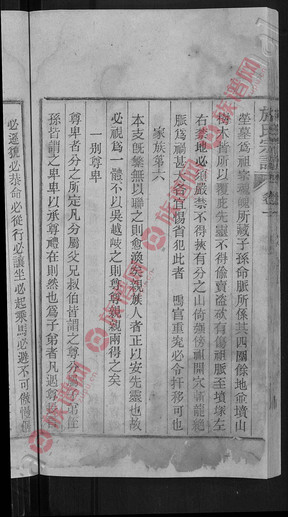 塋墓爲祖宗魂魄所藏子孫命脈所係其四圍餘地命墳山
樹木皆所以覆庇先靈不得偷賣盜砍有傷祖脈至墳塚左
右禁地必須嚴禁不得挾有分之山倚強傍祖開穴斬龍絕
脈爲禍甚大各宜惕省犯此者 鳴官重究必令扦移可也
家族第六
本支旣繁無以聯之則愈渙矣親族人者正以安先靈也故
必視爲一體不以吳越歧之則尊尊親親兩得之矣
一别尊卑
尊卑者分之所定凡分屬父兄叔伯皆謂之尊分屬弟侄
孫皆謂之卑卑以承尊禮在則然也爲子弟者凡遇尊長
必遜貌必恭命必從行必讓坐必起乘馬必避不可傲惰